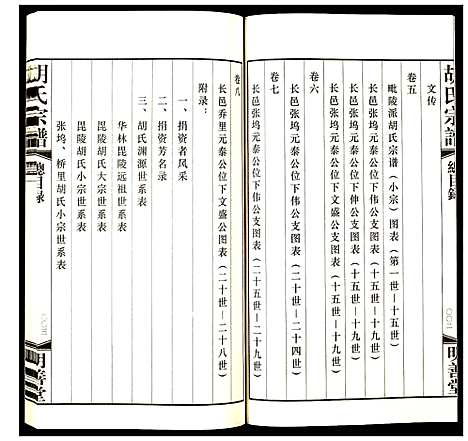 胡氏宗譜
總目錄
明善堂
文传
卷五
毗陵派胡氏宗谱（小宗）图表（第一世—十五世）
长邑张坞元泰公位下文盛公支图表（十五世—十九世）
长邑张坞元泰公位下伟公支图表（十五世—十九世）
卷六
长邑张坞元泰公位下伟公支图表（二十世—二十四世）
卷七
长邑张坞元泰公位下伟公支图表（二十五世—二十九世）
卷八
长邑乔里元泰公位下文盛公图表（二十世—二十八世）
附录：
一、捐资者风采
二、捐资芳名录
三、胡氏渊源世系表
华林毘陵远祖世系表
毘陵胡氏大宗世系表
毘陵胡氏小宗世系表
张坞、桥里胡氏小宗世系表
胡氏宗譜
總目錄
明善堂